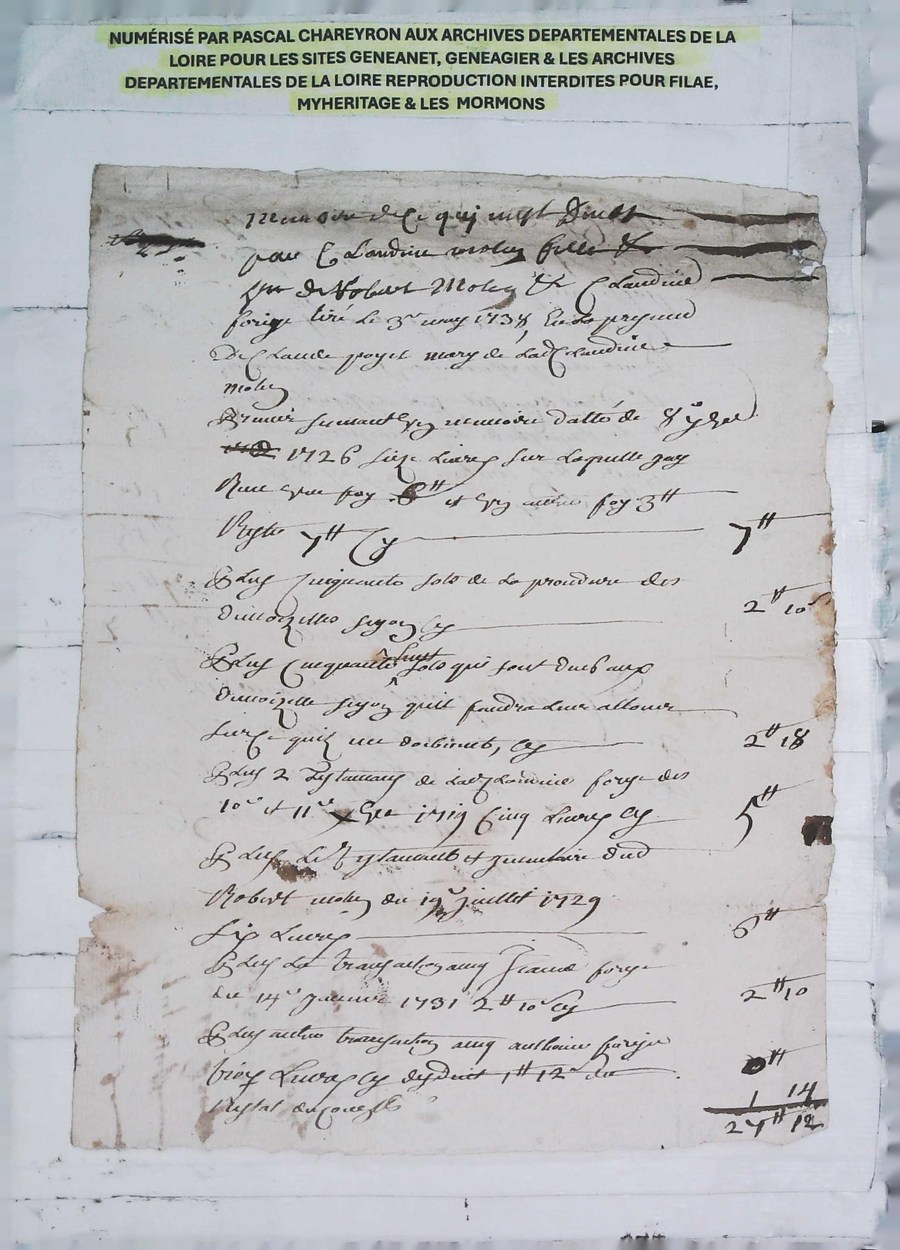 NUMÉRISÉ PAR PASCAL CHAREYRON AUX ARCHIVES DEPARTEMENTALES DE LA
LOIRE POUR LES SITES GENEANET, GENEAGIER & LES ARCHIVES
DEPARTEMENTALES DE LA LOIRE REPRODUCTION INTERDITES POUR FILAE,
MYHERITAGE & LES MORMONS
Memoire de Ce qui mest Deubt
par Claudine molin fille &
de Robert Molin & Claudine
forige tiré Le 3e may 1738 En la presence
De Claude poyet mary de lad Claudine
molin
Premier suivant un memoire datté de
1726 seize Livres sur Laquelle jay
Receu une foy 6# et un autre foy 3#
Reste 7# Cy 7#
Plus Cinquante sols de La procedure des
Damoizelles Cy 2# 10s
Plus Cinquante huit sols qui sont dubs aux
Damoizelle quil faudra leur allouer
sur Ce quil me doibvent, Cy 2# 18
Plus 2 Testamans de lad Claudine forige des
10e et 11e 1719 Cinq Livres Cy 5#
Plus Le Testament et Inventaire dud
Robert molin du 19e juillet 1729
Six Livres 6#
Plus La transaction avec forige
du 14e Janvier 1731 2# 10s Cy 2# 10
Plus autre transaction avec anthoine forige
trois Livres Cy deduit 1# 12s
1 14
27# 12